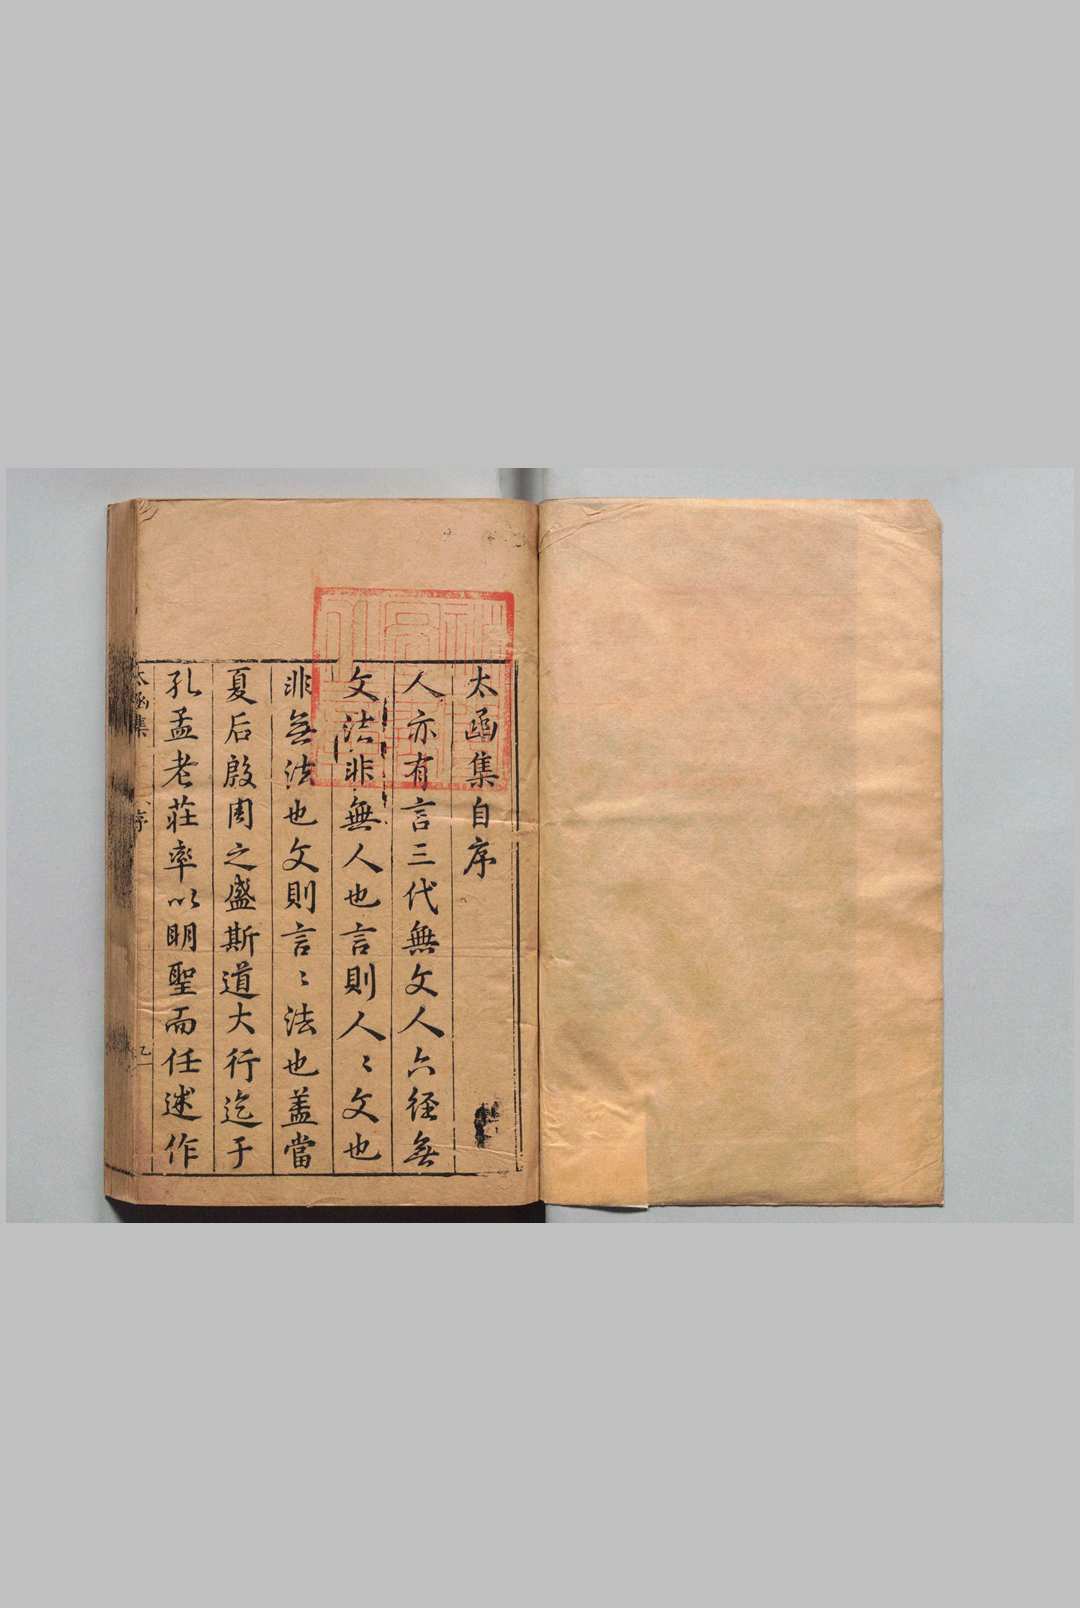 太函集自序
人亦有言三代無文人六径無
文法非無人也言則人〻文也
非無法也文則言〻法也盖當
夏后殷周之盛斯道大行迄于
孔孟老莊率以明聖而任述作
太函集
序